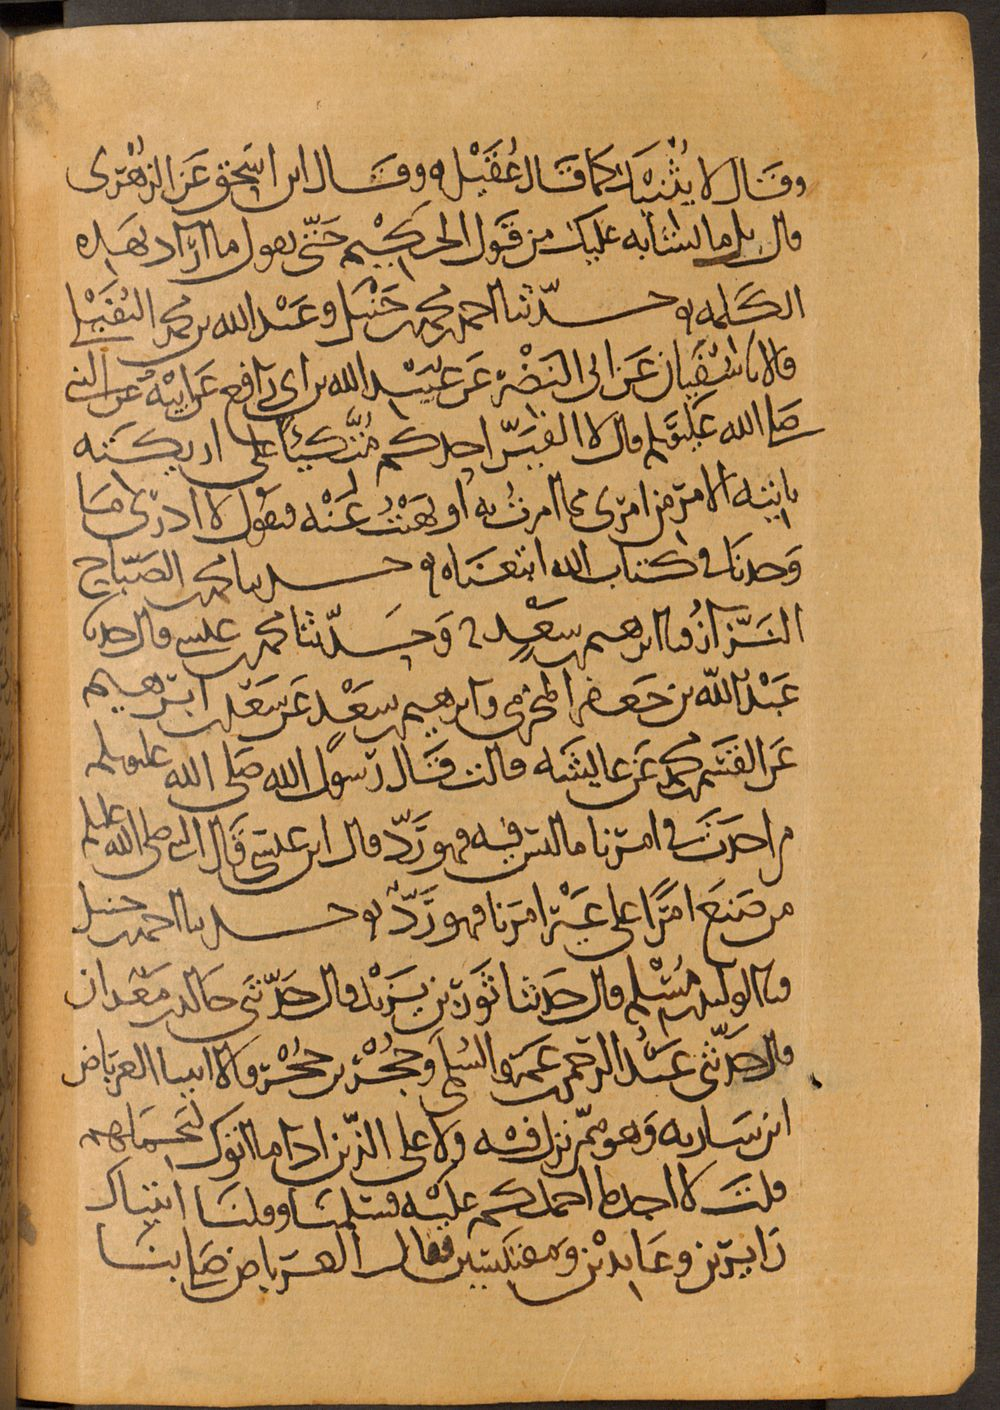 وقال لا يثنينك كما قال عقيل ه وقال ابن اسحق عن الزهرى
قال بل ما تشابه عليك من قول الحكيم حتى يقول ما اراد بهذه
الكلمه ه حدثنا احمد بن محمد بن حنبل وعبد الله بن محمد النفيلى
قالا نا سفيان عن ابى النضر عن عبيد الله بن ابى رافع عن ابيه عن النبى
صلى الله عليه وسلم قال لا الفين احدكم متكيا على اريكته
ياتيه الامر من امرى مما امرت به او نهيت عنه فيقول لا ادرى ما
وجدنا فى كتاب الله اتبعناه ه حدثنا محمد بن الصباح
البزاز نا ابرهيم بن سعد ه وحدثنا محمد بن عيسى قال حدثنا
عبد الله بن جعفر المخرمى وابرهيم بن سعد عن سعد بن ابرهيم
عن القسم بن محمد عن عايشه قالت قال رسول الله صلى الله عليه وسلم
من احدث فى امرنا ما ليس فيه فهو رد قال ابن عيسى قال النبى صلى الله عليه وسلم
من صنع امرا على غير امرنا فهو رد ه حدثنا احمد بن حنبل
نا الوليد بن مسلم قال حدثنا ثور بن يزيد قال حدثنى خالد بن معدان
قال حدثنى عبد الرحمن بن عمرو السلمى وحجر بن حجر قالا اتينا العرباض
ابن ساريه وهو ممن نزل فيه ولا على الذين اذا ما اتوك لتحملهم
قلت لا اجد ما احملكم عليه فسلمنا وقلنا اتيناك
زايرين وعايدين ومقتبسين فقال العرباض صلى بنا